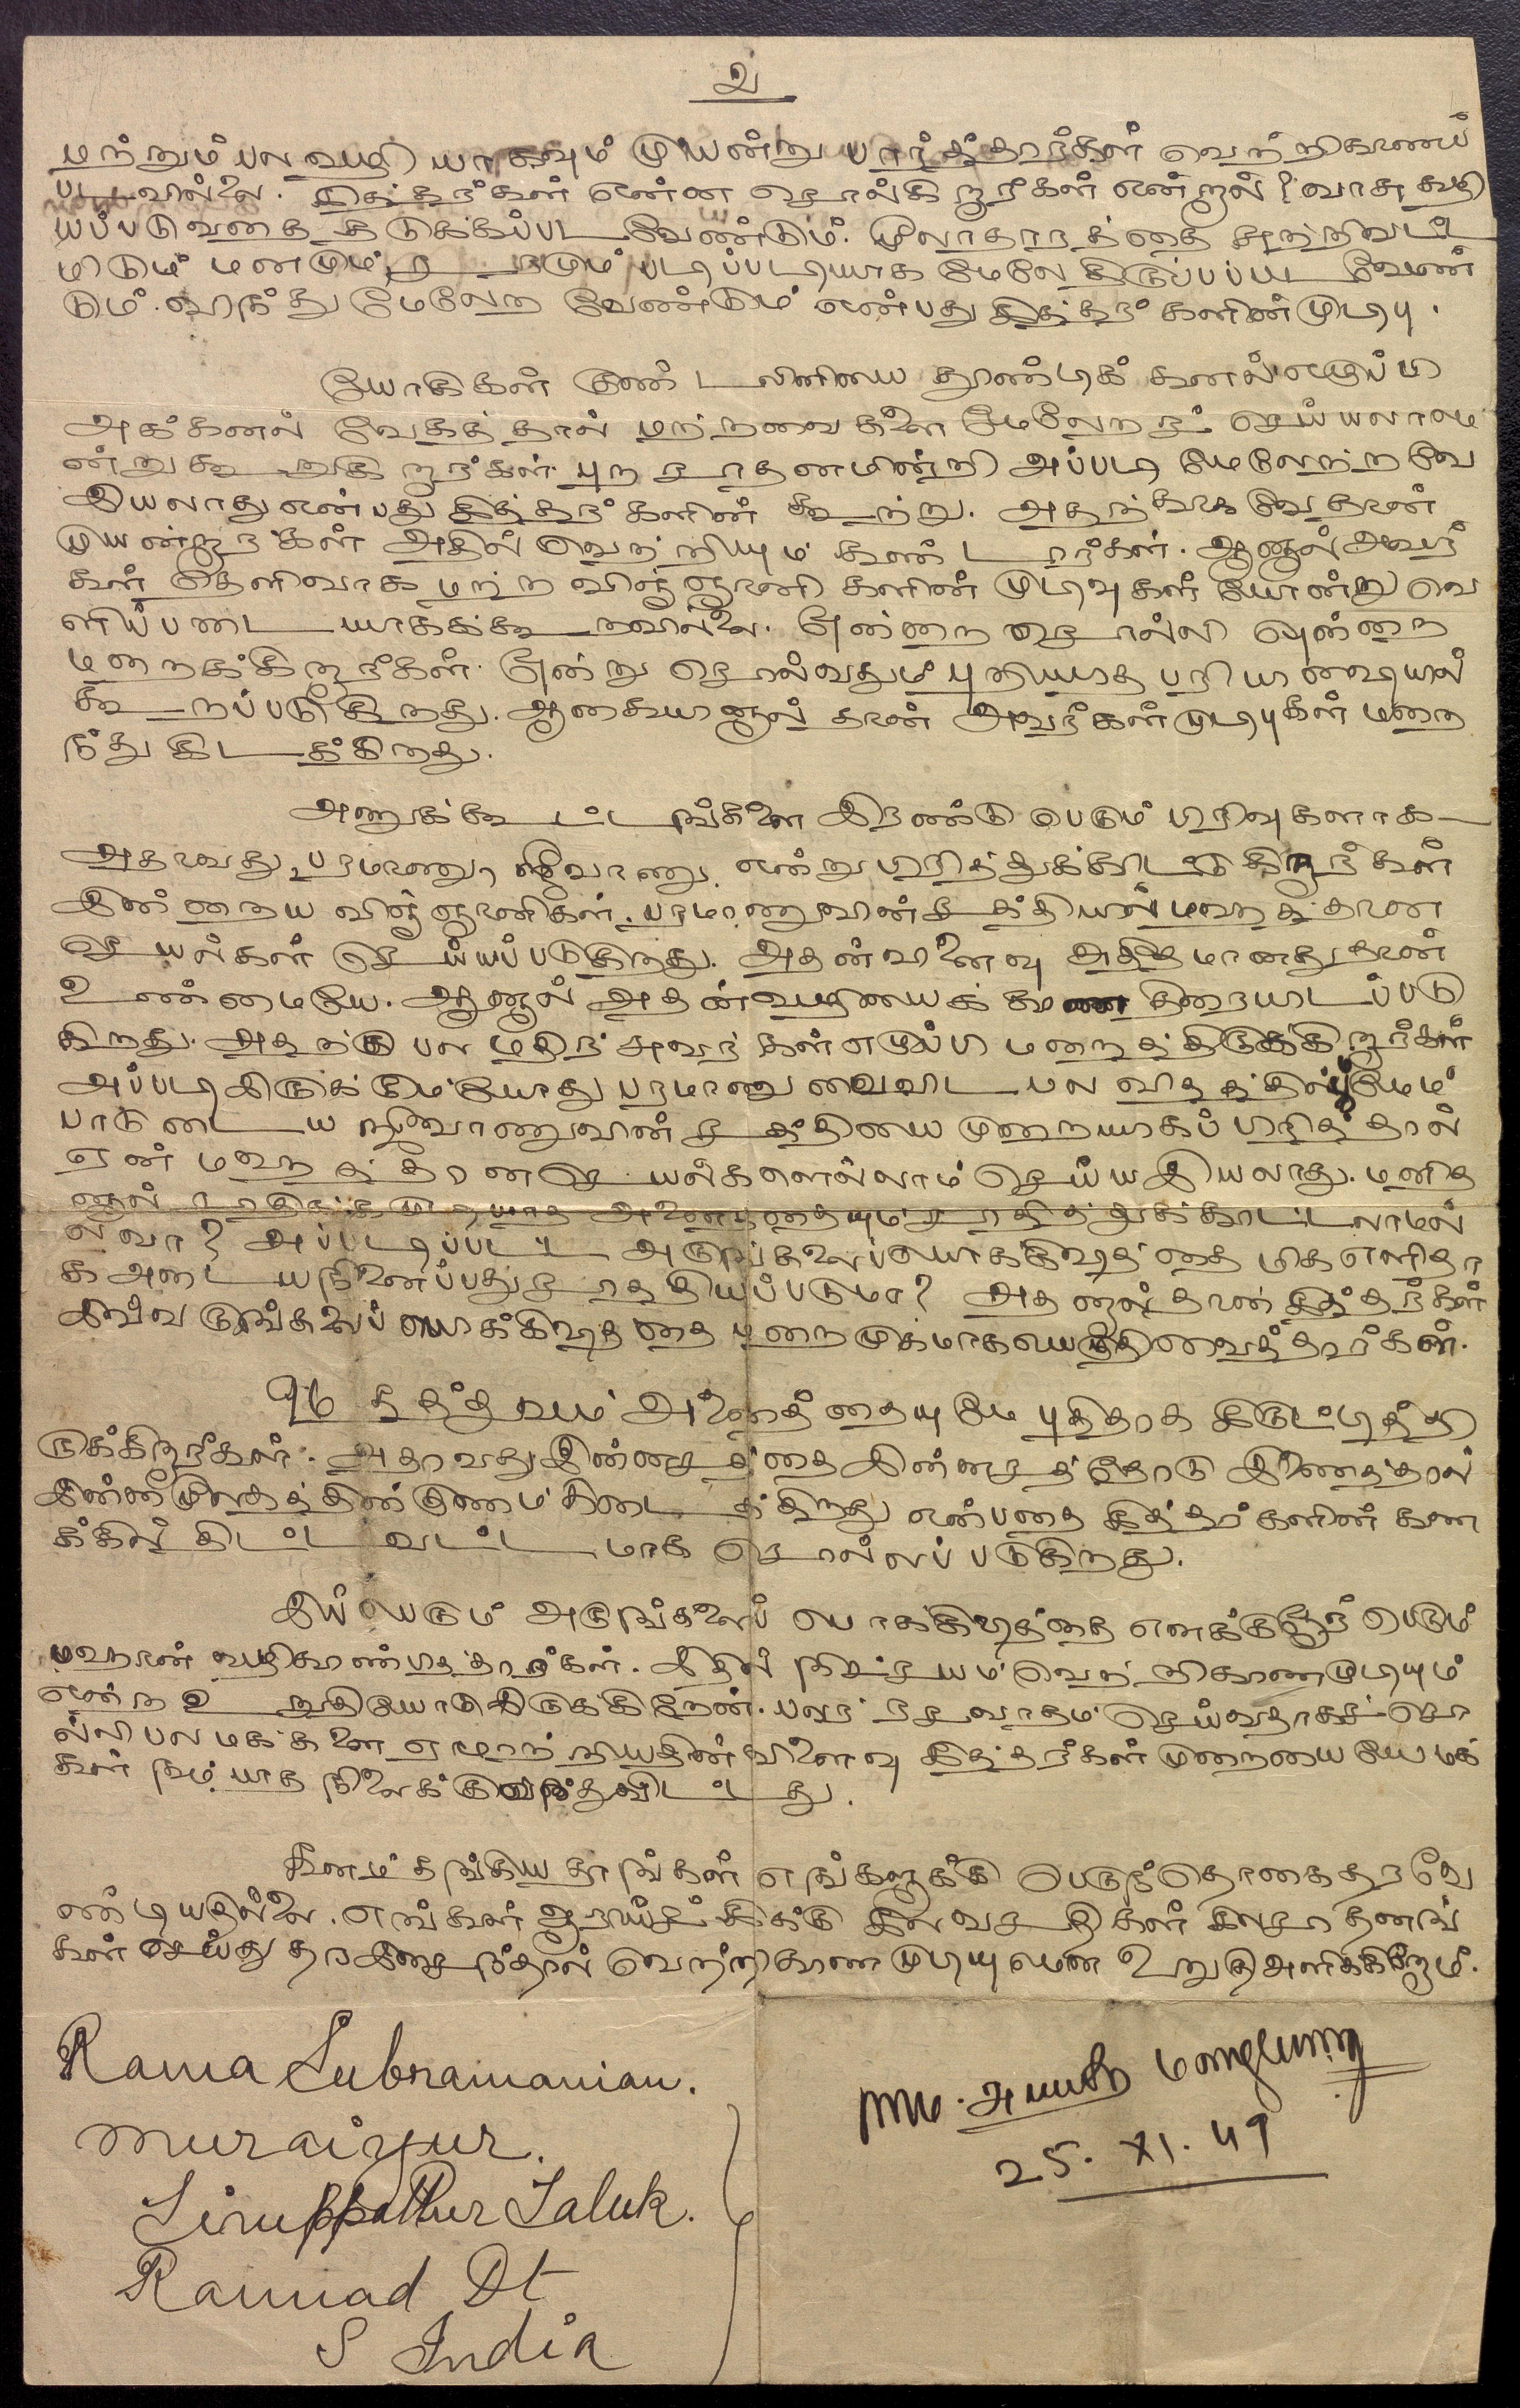 ௨
மற்றும் பல வழி யாகவும் முயன்று பார்த்தார்கள் வெற்றிகாணப்
படவில்லை. சித்தர்கள் என்ன சொல்கிறார்கள் என்றால்? வாசு கழி
யப்படுவதை தடுக்கப்பட வேண்டும். மூலாதாரத்தை சுற்றிவட்ட
மிடும் மனமும் படிப்படியாக மேலே திருப்பப்பட வேண்
டும். வாந்து மேலேற வேண்டும் என்பது சித்தர் களின்முடிபு.
யோகிகள் குண்டலினியை தூண்டிக் கனல்எழுப்பி
அக்கனல் வேகத்தால் மற்றவைகளை மேலேறச் செய்யலாமெ
ன்றுகூறுகிறார்கள். புற சாதனமின்றி அப்படி மேலேற்றவே
இயலாது என்பது சித்தர் களின் கூற்று. அதற்காகவேதான்
முயன்றார்கள் அதில் வெற்றியும் கண்டார்கள். ஆனால் அவர்
கள் தெளிவாக மற்ற விஞ்ஞானி களின் முடிவுகள் போன்று வெ
ளிப்படையாகக்கூறவில்லை. ஒன்றை சொல்லி ஒன்றை
மறைக்கிறார்கள். ஒன்று சொல்வதும் புரியாத பரிபாஷையில்
கூறப்படுகிறது. ஆகையினால் தான் அவர்கள்முடிபுகள் மறை
ந்து கிடக்கிறது.
அணுக்கூட்டங்களை இரண்டு பெரும் பிரிவுகளாக
அதாவது, பரமாணு, ஜீவாணு என்று பிரித்துக்காட்டுகிறார்கள்
இன்றைய விஞ்ஞானிகள். பரமாணுவின் சக்தியில் மகத்தான
செயல்கள் செய்யப்படுகிறது. அதன்விளைவு அதிகமானதுதான்
உண்மையே. ஆனால் அதன்வழியைக் திரையிடப்படு
கிறது. அதற்கு பல மதிற் சுவர்கள் எழுப்பி மறைத்திருக்கிறார்கள்
அப்படிஇருக்கும்போது பரமாணுவைவிட பல விதத்தில் மேம்
பாடுடைய ஜீவாணுவின் சக்தியை முறையாகப் பிரித்தால்
ஏன் மகத்தானசெயல்களெல்லாம் செய்யஇயலாது. மனித
னால் சாதிக்கமுடியாத அனைத்தையும் சாதித்துக்காட்டலாமல்
லவா? அப்படிப்பட்ட அரும்கலைப்பொக்கிஷத்தை மிகஎளிதா
கஅடையநினைப்பது சாத்தியப்படுமா? அதனால்தான் சித்தர்கள்
இவ்வருங்கலைப் பொக்கிஷத்தை மறைமுகமாகவெழுதிவைத்தார்கள்.
96 தத்துவம் அனைத்தையுமே புதிதாக சிருட்டித்தி
ருக்கிறார்கள். அதாவது இன்னசத்தை இன்னசத்தோடு இணைத்தால்
இன்னமூலகத்தின் குணம் கிடைக்கிறது என்பதை சித்தர்களின் கண
க்கில் திட்டவட்டமாக சொல்லப்படுகிறது.
இப்பெரும் அரும்கலைப் பொக்கிஷத்தை எனக்குஓர் பெரும்
மஹான் வழிகாண்பித்தார்கள். இதில் நிச்சயம் வெற்றிகாணமுடியும்
என்ற உறுதியோடுஇருக்கிறேன். பலர் ரசவாதம் செய்வதாகச் சொ
ல்லி பல மக்களை ஏமாற்றியதின் விளைவு சித்தர்கள் முறையையே மக்
கள் நம்பாத நிலைக்குவந்துவிட்டது.
கனம் தங்கிய தாங்கள் எங்களுக்கு பெருந்தொகைதரவே
ண்டியதில்லை. எங்கள் ஆராய்ச்சிக்கு இல வசதிகள் இலசாதனங்
கள் செய்து தரஇசைந்தால் வெற்றிகாண முடியுமென உறுதிஅளிக்கிறேம்.
Rama Subramanian.
Muraiyur.
Tiruppathur Taluk.
Ramnad Dt
S India
25. XI. 49